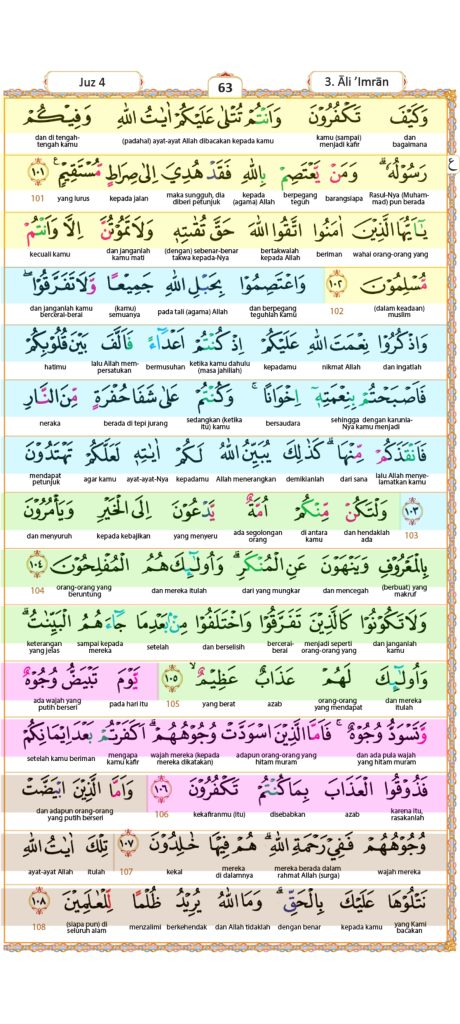 Juz 4
63
3. Āli ‘Imrān
وَكَيْفَ تَكْفُرُوْنَ وَاَنْتُمْ تُتْلٰى عَلَيْكُمْ اٰيٰتُ اللّٰهِ وَفِيْكُمْ
dan bagaimana kamu (sampai) menjadi kafir (padahal) ayat-ayat Allah dibacakan kepada kamu dan di tengah-tengah kamu
ع
رَسُوْلُهٗ ۗ وَمَنْ يَّعْتَصِمْ بِاللّٰهِ فَقَدْ هُدِيَ اِلٰى صِرَاطٍ مُّسْتَقِيْمٍ ࣖ ١٠١
Rasul-Nya (Muhammad) pun berada barangsiapa berpegang teguh kepada (agama) Allah maka sungguh, dia diberi petunjuk kepada jalan yang lurus 101
يٰٓاَيُّهَا الَّذِيْنَ اٰمَنُوا اتَّقُوا اللّٰهَ حَقَّ تُقٰىتِهٖ وَلَا تَمُوْتُنَّ اِلَّا وَاَنْتُمْ
wahai orang-orang yang beriman bertakwalah kepada Allah (dengan) sebenar-benar takwa kepada-Nya dan janganlah kamu mati kecuali kamu
مُّسْلِمُوْنَ ١٠٢ وَاعْتَصِمُوْا بِحَبْلِ اللّٰهِ جَمِيْعًا وَّلَا تَفَرَّقُوْا ۖ
(dalam keadaan) muslim 102 dan berpegang teguhlah kamu pada tali (agama) Allah (kamu) semuanya dan janganlah kamu bercerai-berai
وَاذْكُرُوْا نِعْمَتَ اللّٰهِ عَلَيْكُمْ اِذْ كُنْتُمْ اَعْدَاۤءً فَاَلَّفَ بَيْنَ قُلُوْبِكُمْ
dan ingatlah nikmat Allah kepadamu ketika kamu dahulu (masa jahiliah) bermusuhan lalu Allah mempersatukan hatimu
فَاَصْبَحْتُمْ بِنِعْمَتِهٖٓ اِخْوَانًا ۚ وَكُنْتُمْ عَلٰى شَفَا حُفْرَةٍ مِّنَ النَّارِ
sehingga dengan karunia-Nya kamu menjadi bersaudara sedangkan (ketika itu) kamu berada di tepi jurang neraka
فَاَنْقَذَكُمْ مِّنْهَا ۗ كَذٰلِكَ يُبَيِّنُ اللّٰهُ لَكُمْ اٰيٰتِهٖ لَعَلَّكُمْ تَهْتَدُوْنَ
lalu Allah menyelamatkan kamu dari sana demikianlah Allah menerangkan kepadamu ayat-ayat-Nya agar kamu mendapat petunjuk
١٠٣ وَلْتَكُنْ مِّنْكُمْ اُمَّةٌ يَّدْعُوْنَ اِلَى الْخَيْرِ وَيَأْمُرُوْنَ
103 dan hendaklah ada di antara kamu ada segolongan orang yang menyeru kepada kebajikan dan menyuruh
بِالْمَعْرُوْفِ وَيَنْهَوْنَ عَنِ الْمُنْكَرِ ۗ وَاُولٰۤىِٕكَ هُمُ الْمُفْلِحُوْنَ ١٠٤
(berbuat) yang makruf dan mencegah dari yang mungkar dan mereka itulah orang-orang yang beruntung 104
وَلَا تَكُوْنُوْا كَالَّذِيْنَ تَفَرَّقُوْا وَاخْتَلَفُوْا مِنْۢ بَعْدِ مَا جَاۤءَهُمُ الْبَيِّنٰتُ ۗ
dan janganlah kamu menjadi seperti orang-orang yang bercerai-berai dan berselisih setelah sampai kepada mereka keterangan yang jelas
وَاُولٰۤىِٕكَ لَهُمْ عَذَابٌ عَظِيْمٌ ۙ ١٠٥ يَّوْمَ تَبْيَضُّ وُجُوْهٌ
dan mereka itulah orang-orang yang mendapat azab yang berat 105 pada hari itu ada wajah yang putih berseri
وَّتَسْوَدُّ وُجُوْهٌ ۚ فَاَمَّا الَّذِيْنَ اسْوَدَّتْ وُجُوْهُهُمْ ۗ اَكَفَرْتُمْ بَعْدَ اِيْمَانِكُمْ
dan ada pula wajah yang hitam muram adapun orang-orang yang hitam muram wajah mereka (kepada mereka dikatakan) mengapa kamu kafir setelah kamu beriman
فَذُوْقُوا الْعَذَابَ بِمَا كُنْتُمْ تَكْفُرُوْنَ ١٠٦ وَاَمَّا الَّذِيْنَ ابْيَضَّتْ
karena itu, rasakanlah azab disebabkan kekafiranmu (itu) 106 dan adapun orang-orang yang putih berseri
وُجُوْهُهُمْ فَفِيْ رَحْمَةِ اللّٰهِ ۗ هُمْ فِيْهَا خٰلِدُوْنَ ١٠٧ تِلْكَ اٰيٰتُ اللّٰهِ
wajah mereka mereka berada dalam rahmat Allah (surga) mereka di dalamnya kekal 107 itulah ayat-ayat Allah
نَتْلُوْهَا عَلَيْكَ بِالْحَقِّ ۗ وَمَا اللّٰهُ يُرِيْدُ ظُلْمًا لِّلْعٰلَمِيْنَ ١٠٨
yang Kami bacakan kepada kamu dengan benar dan Allah tidaklah berkehendak menzalimi (siapa pun) di seluruh alam 108